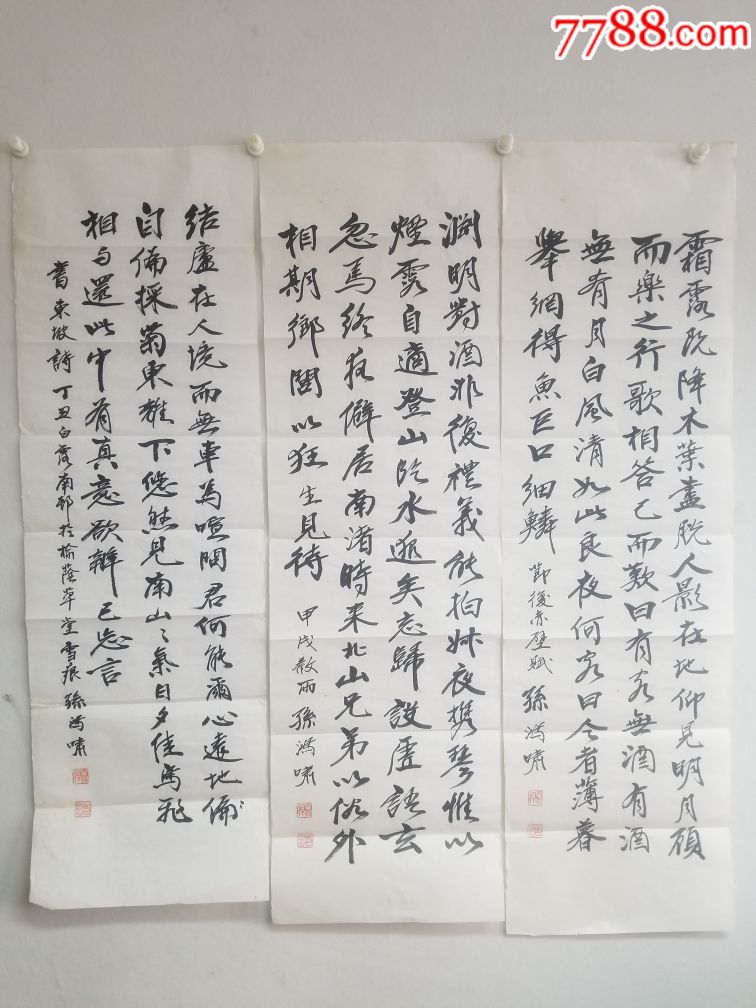 7788.com
霜露既降木葉盡脫人影在地仰見明月顧
而樂之行歌相答已而歎曰有客無酒有酒
無肴月白風清如此良夜何客曰今者薄暮
舉網得魚巨口細鱗 節後赤壁賦 孫鴻嘯
淵明對酒非復禮義能拘叔夜携琴惟以
煙霞自適登山臨水邈矣忘歸設虛語玄
忽焉終夜僻居南渚時来北山兄弟以俗外
相期鄉閭以狂生見待 甲戌穀雨 孫鴻嘯
结廬在人境而無車馬喧問君何能爾心遠地偏
自偏採菊東籬下悠然見南山々氣日夕佳鳥飛
相与還此中有真意欲辯已忘言
書東坡詩丁丑白露南邨於榆蔭草堂雪痕孫鴻嘯